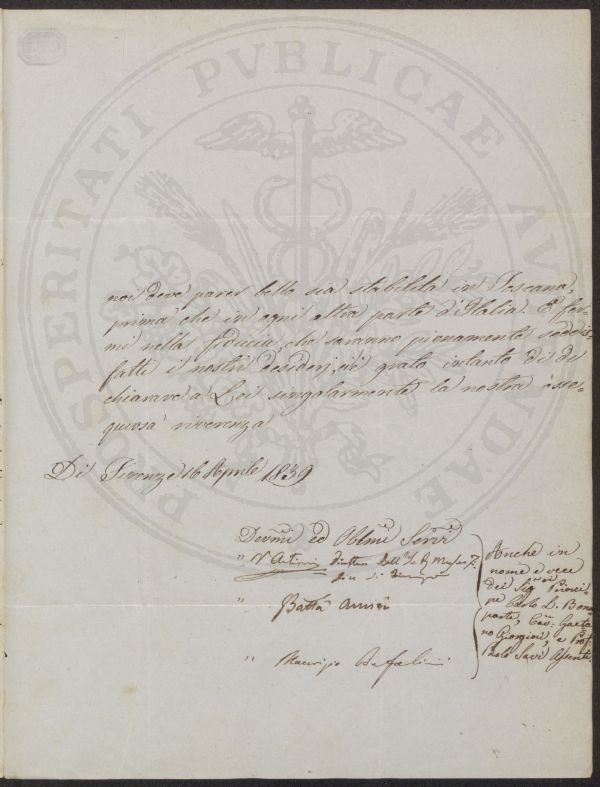 PROSPERITATI PVBLICAE AVGENDAE
noi deve parer bello sia stabilita in Toscana,
prima che in ogni altra parte d'Italia. E fer-
mi nella fiducia, che saranno pienamente soddis-
fatti i nostri desiderj, ci è grato intanto di di-
chiarare a Lei singolarmente la nostra osse-
quiosa riverenza
Di Firenze 16 Aprile 1839
Devmi ed Obbmi Servri
" V. Antinori Direttore dell' I. e R. Museo di
Fisica di Firenze
" Gio Batta Amici
" Maurizio Bufalini
Anche in
nome e vece
dei Sigri Princi-
pe Carlo L. Bona-
parte, Cav: Gaeta-
no Giorgini, e Prof:
Paolo Savi assenti